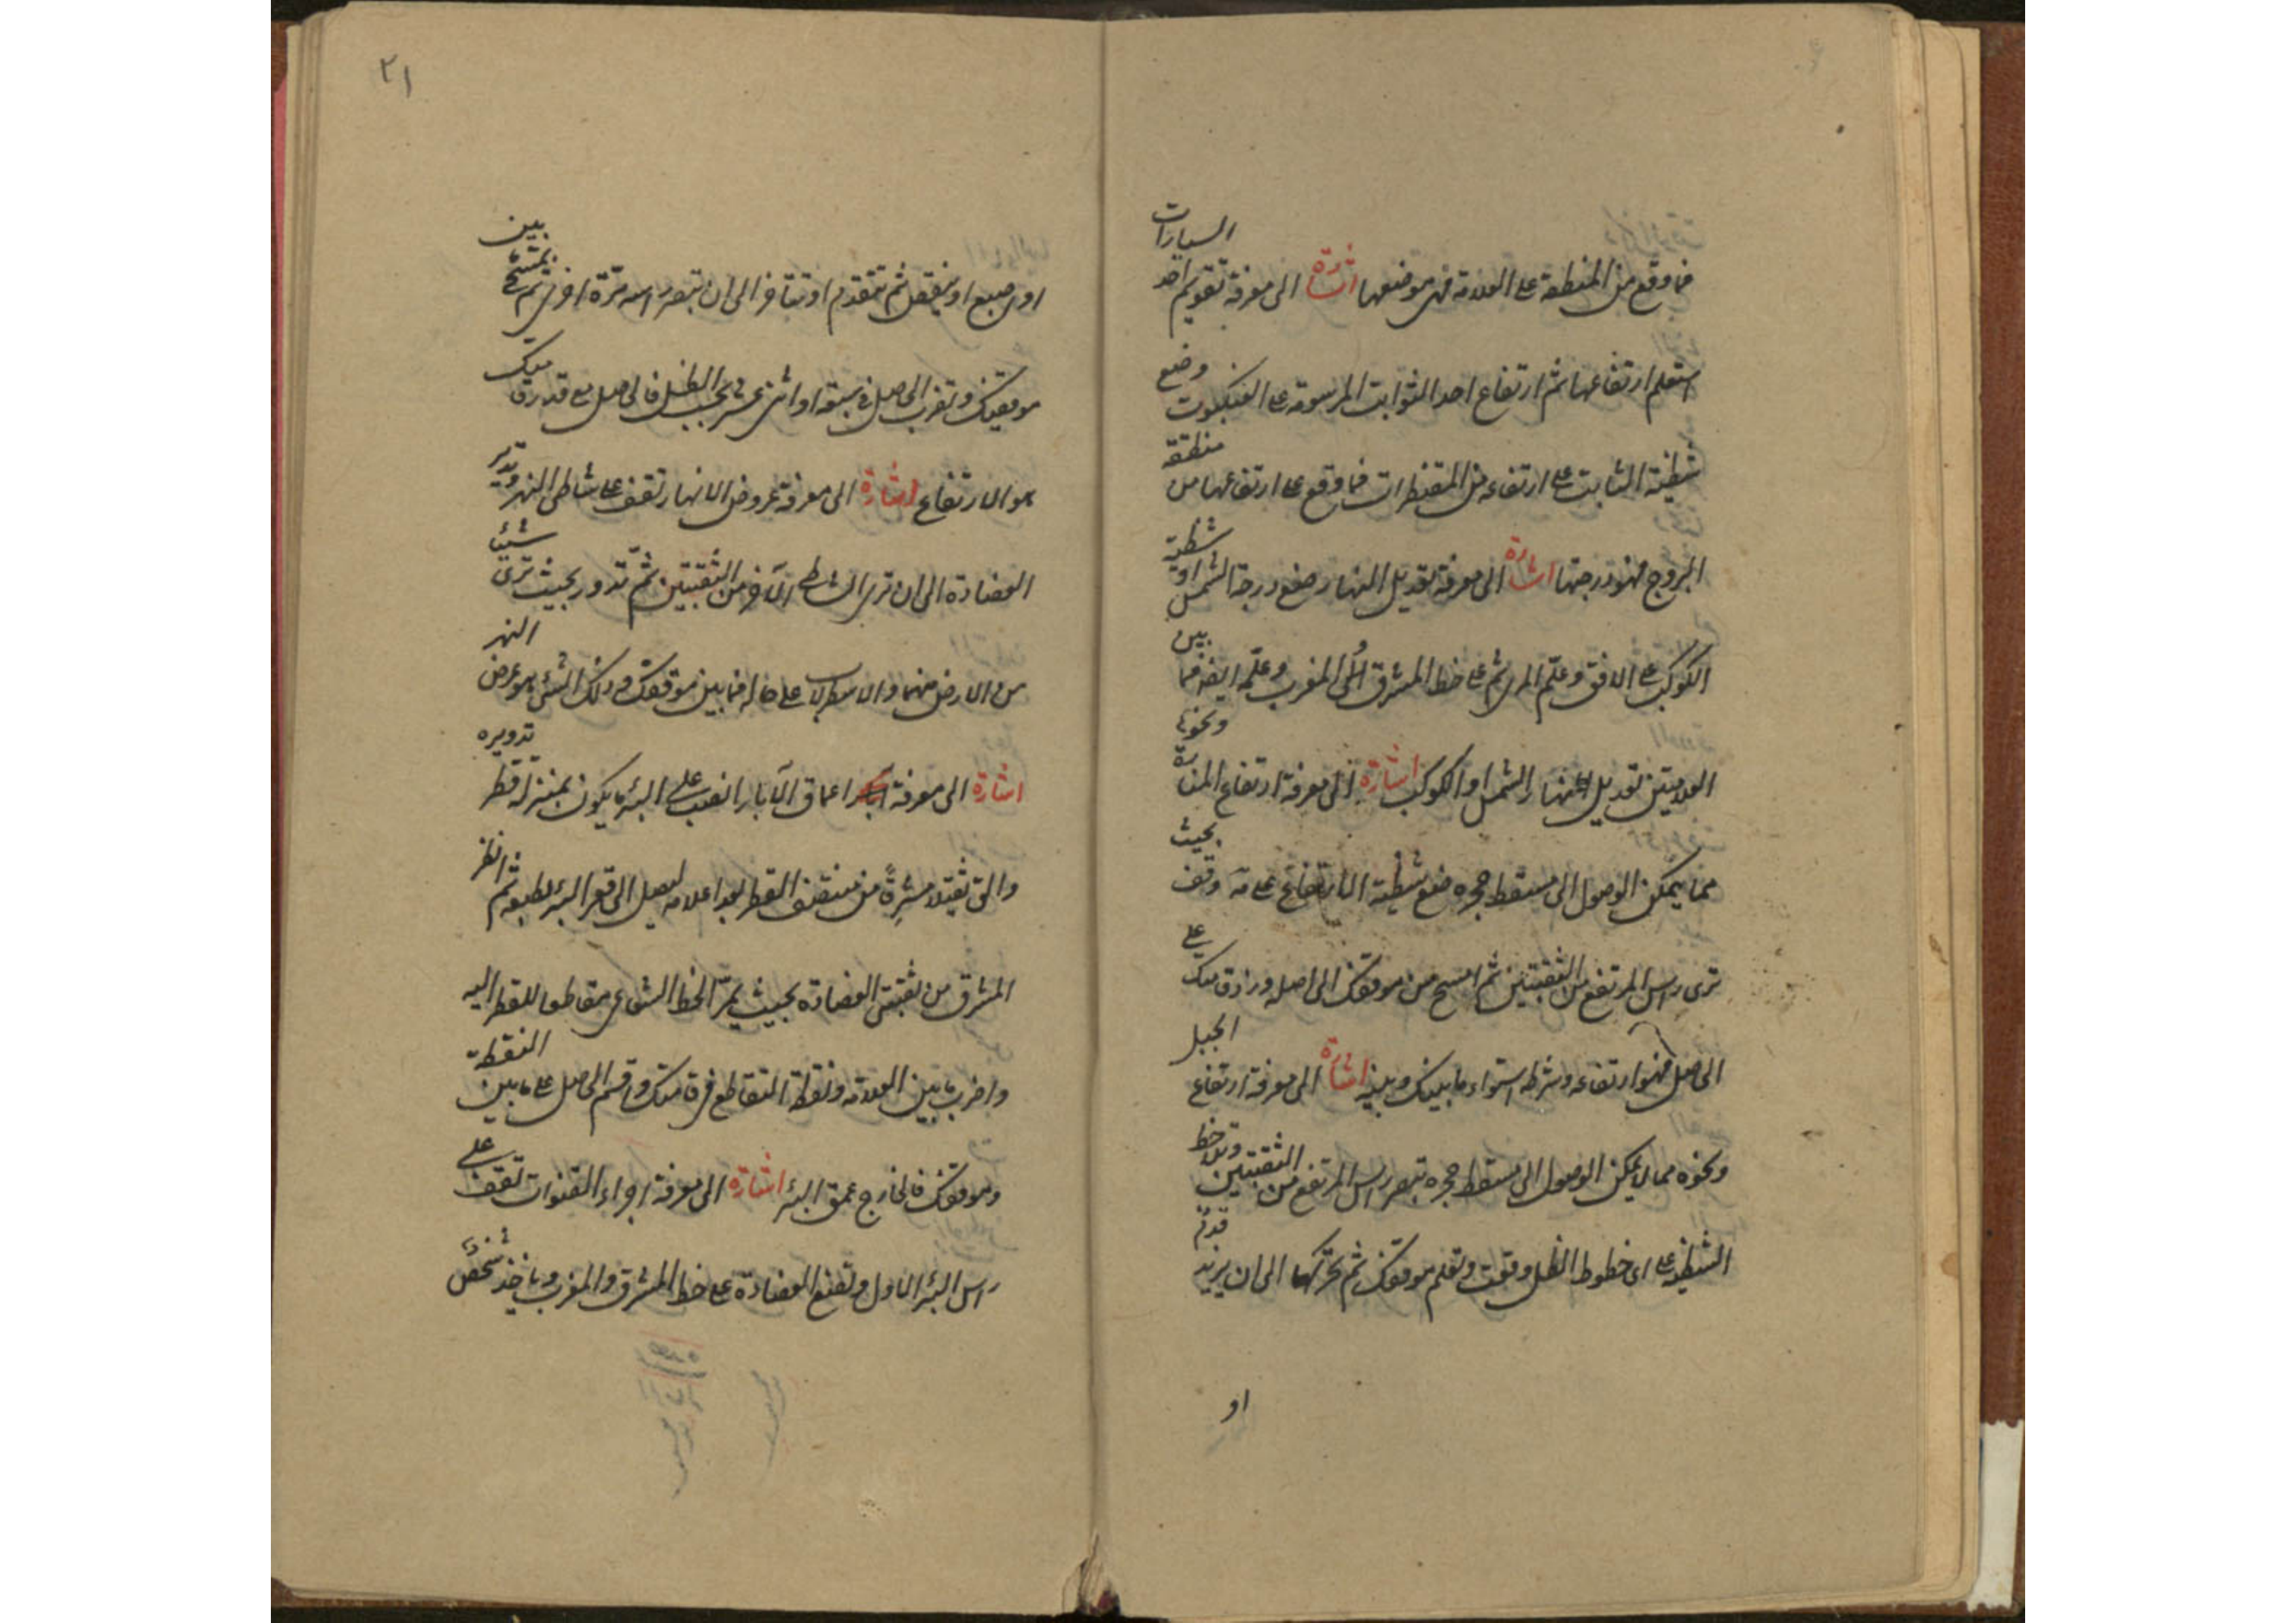 فما وقع من المنطقة على العلامة فهى موضعها اشارة الى معرفة تقويم احد السيارات
استعلم ارتفاعها ثم ارتفاع احد الثوابت المرسومة على العنكبوت وضع
شظية الثابت على ارتفاعه من المقنطرات فما وقع على ارتفاعها من منطقة
البروج فهو درجتها اشارة الى معرفة تعديل النهار ضع درجة الشمس او شظية
الكوكب على الافق وعلّم المرى ثم على خط المشرق او المغرب وعلّم ايضا فما بين
العلامتين تعديل نهار الشمس او الكوكب اشارة الى معرفة ارتفاع المنارة ونحوها
مما يمكن الوصول الى مسقط حجره ضع شظية الارتفاع على مه وقف بحيث
ترى راس المرتفع من الثقبتين ثم امسح من موقفك الى اصله وزد قامتك على
الحاصل فهو ارتفاعه وشرطه استواء ما بينك وبينه اشارة الى معرفة ارتفاع الجبل
ونحوه مما لا يمكن الوصول الى مسقط حجره تبصر راس المرتفع من الثقبتين وتلاحظ
الشظية على اى خطوط الظل وقعت وتعلم موقفك ثم تحركها الى ان يزيد قدم
او
٢١
او اصبع او ينقص ثم تتقدم او تتاخر الى ان تبصر راسه مرّة اخرى ثم تمسح بين
موقفيك وتضرب الحاصل فى سبعة او اثنى عشر بحسب الظل فالحاصل مع قدر قامتك
هو الارتفاع اشارة الى معرفة عروض الانهار تقف على شاطى النهر وتدير
العضادة الى ان ترى الشاطى الآخر من الثقبتين ثمّ تدور بحيث ترى شيئا
من الارض منهما والاسطرلاب على حاله فما بين موقفك وذلك الشئ هو عرض النهر
اشارة الى معرفة اعماق الآبار انصب على البئر ما يكون بمنزلة قطر تدويره
والق ثقيلا مشرقا من منتصف القطر بعد اعلامه ليصل الى قعر البئر بطبعه ثم انظر
المشرق من ثقبتى العضادة بحيث يمرّ الخط الشعاعى مقاطعا للقطر اليه
واضرب ما بين العلامة ونقطة التقاطع فى قامتك واقسم الحاصل على ما بين النقطة
وموقفك فالخارج عمق البئر اشارة الى معرفة اجراء القنوات تقف على
راس البئر الاول وتضع العضادة على خط المشرق والمغرب وياخذ شخص